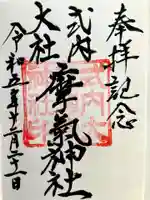 奉拝記念
式内
摩氣神社
大社
令和五年十二月二十二日